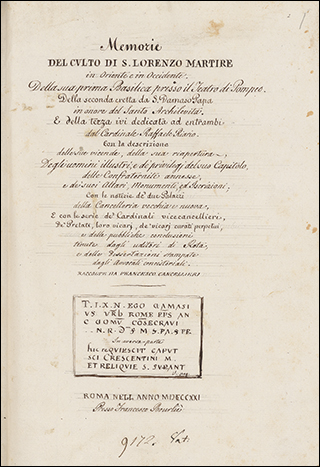 Memorie
DEL CVLTO DI S. LORENZO MARTIRE
in Oriente e in Occidente.
Della sua prima Basilica presso il Teatro di Pompeo.
Della seconda eretta da S. Damaso Papa
in onore del Santo Archilevita
E della terza ivi dedicata ad entrambi
dal Cardinale Raffaele Riario.
Con la descrizione
delle vicende, della sua riapertura
Degli uomini illustri, e de' privilegj del suo Capitolo,
delle Confraternite annesse,
e de' suoi Altari, Monumenti, ed Iscrizioni,
Con le notizie de' due Palazzi
della Cancelleria vecchia e nuova,
E con le serie de' Cardinali vicecancellieri,
De' Prelati, loro vicarj, de' vicarj curati perpetui,
e delle pubbliche conclusioni
tenute dagli uditori di Rota,
e delle Dissertazioni stampate
dagli Avvocati concistoriali.
RACCOLTE DA FRANCESCO CANCELLIERI
T. I. X. N. EGO DAMASI
VS VRB ROME EPS AN
C DOMV COSECRAVI
N. R. D S M S PA S PE
In altera parte
HIC REQVIESCIT CAPVT
SCI CRESCENTINI M.
ET RELIQVIE S. SVPANT
ROMA NELL' ANNO MDCCCXXI
Presso Francesco Bourlié
9172. Lat.